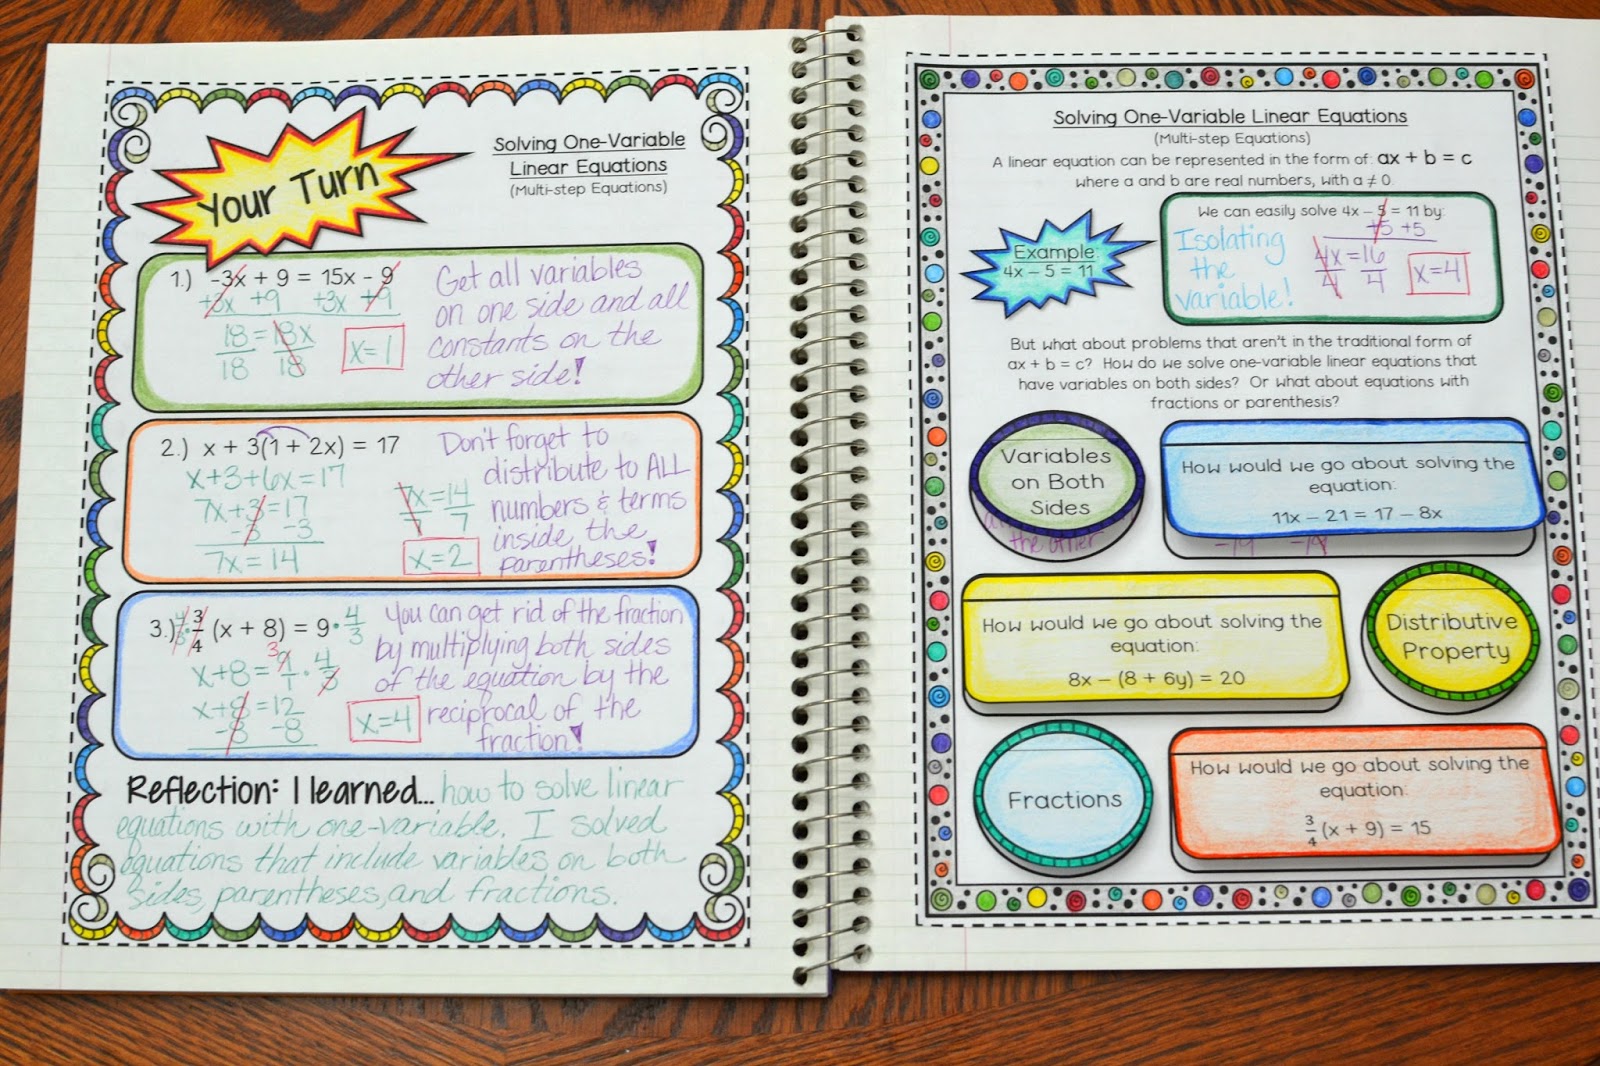 Your Turn
Solving One-Variable
Linear Equations
(Multi-step Equations)
1.) -3x + 9 = 15x - 9
+3x +9 +3x +9
18 = 18x
18 18
x=1
Get all variables
on one side and all
constants on the
other side!
2.) x + 3(1 + 2x) = 17
x+3+6x=17
7x+3=17
-3 -3
7x=14
7x=14
7 7
x=2
Don't forget to
distribute to ALL
numbers & terms
inside the
parentheses!
3.) 4/3 · 3/4 (x + 8) = 9 · 4/3
x+8 = 9/1 · 4/3
3
x+8=12
-8 -8
x=4
You can get rid of the fraction
by multiplying both sides
of the equation by the
reciprocal of the
fraction!
Reflection: I learned... how to solve linear
equations with one-variable. I solved
equations that include variables on both
sides, parentheses, and fractions.
Solving One-Variable Linear Equations
(Multi-step Equations)
A linear equation can be represented in the form of: ax + b = c
where a and b are real numbers, with a ≠ 0.
Example:
4x – 5 = 11
We can easily solve 4x – 5 = 11 by:
+5 +5
Isolating
the
variable!
4x=16
4 4
x=4
But what about problems that aren't in the traditional form of
ax + b = c? How do we solve one-variable linear equations that
have variables on both sides? Or what about equations with
fractions or parenthesis?
Variables
on Both
Sides
the other
How would we go about solving the
equation:
11x – 21 = 17 – 8x
-19 -19
How would we go about solving the
equation:
8x – (8 + 6y) = 20
Distributive
Property
Fractions
How would we go about solving the
equation:
3/4 (x + 9) = 15